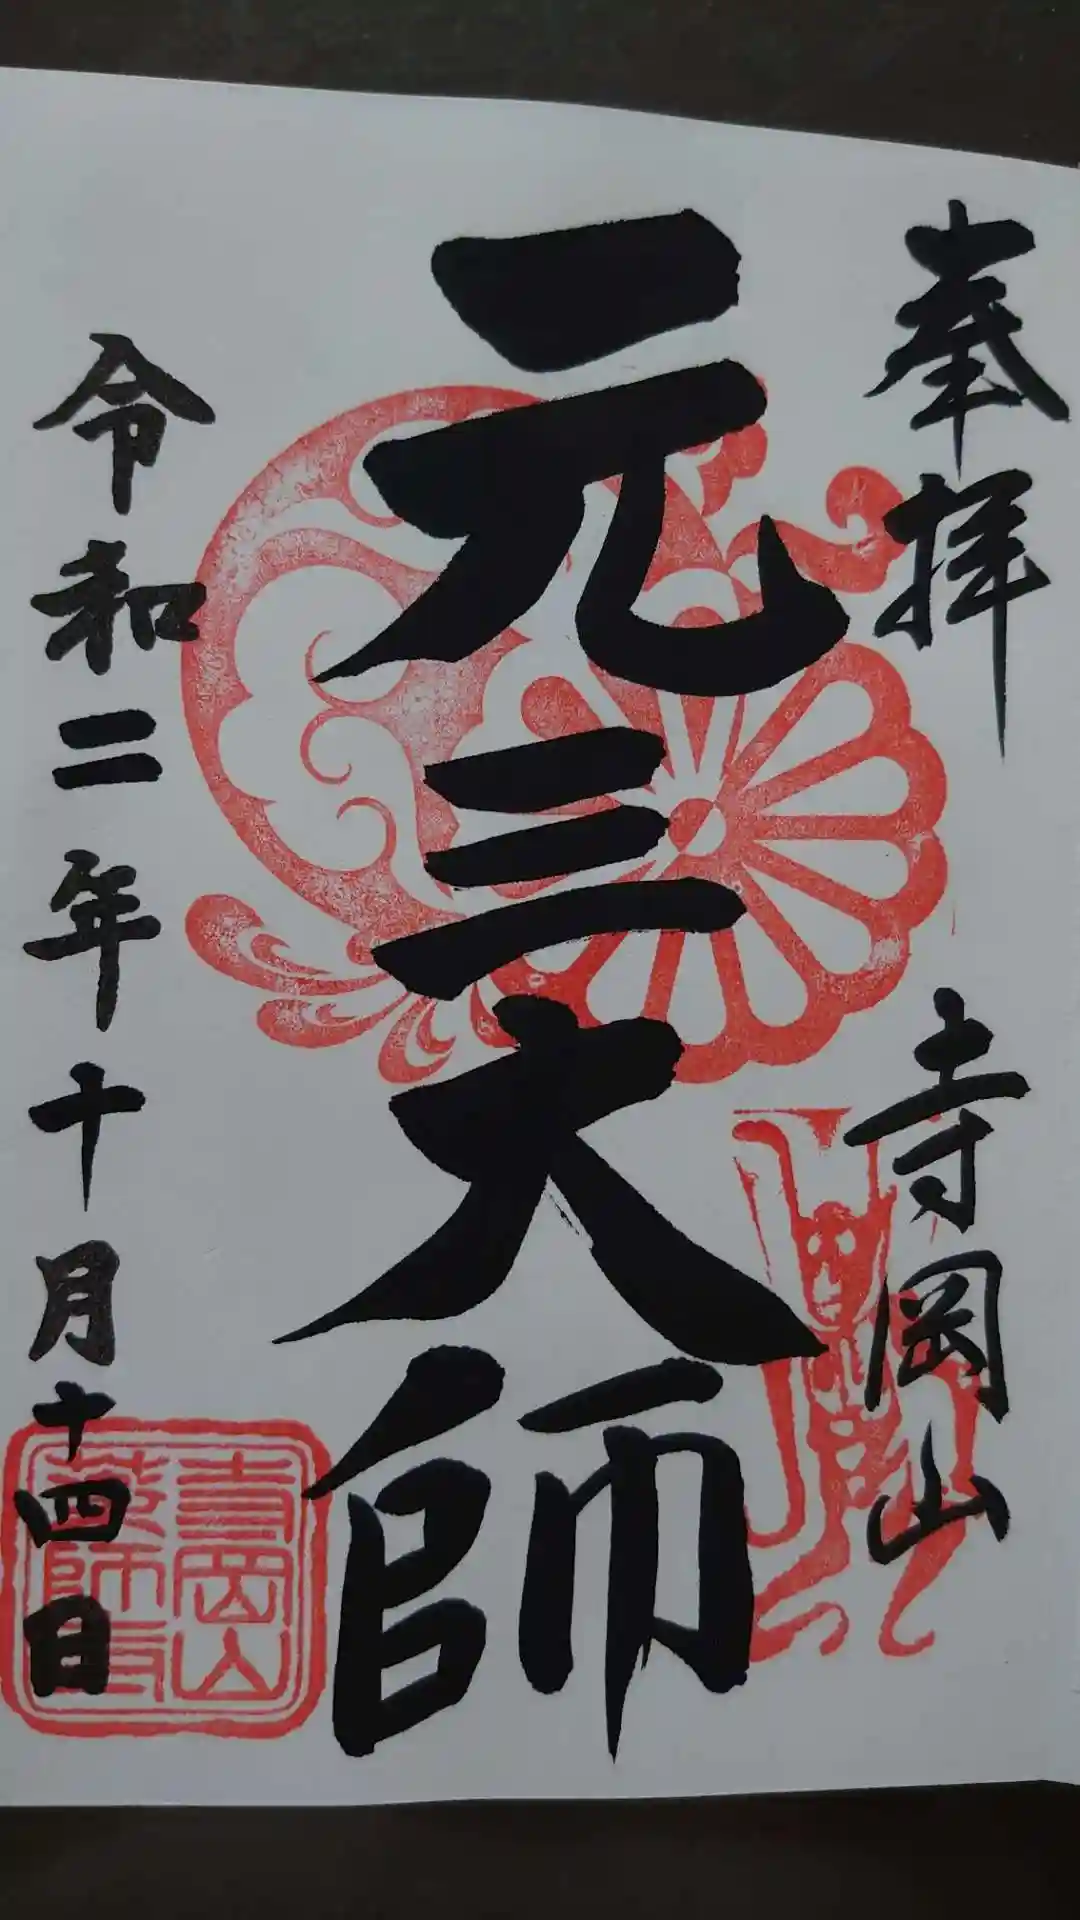 奉拝 寺岡山
元三大師
令和二年十月十四日
寺岡山
薬師寺